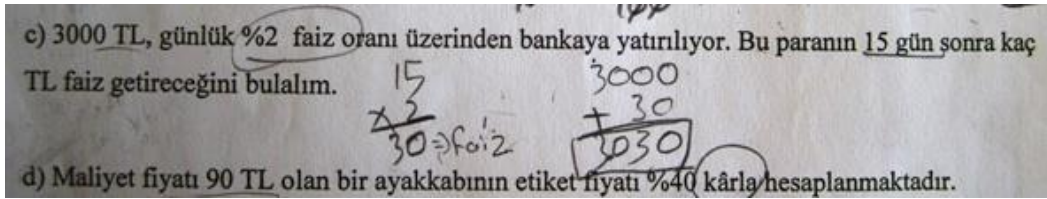 c) 3000 TL, günlük %2 faiz oranı üzerinden bankaya yatırılıyor. Bu paranın 15 gün sonra kaç
TL faiz getireceğini bulalım.
15
x 2
30 => faiz
3000
+ 30
3030
d) Maliyet fiyatı 90 TL olan bir ayakkabının etiket fiyatı %40 kârla hesaplanmaktadır.